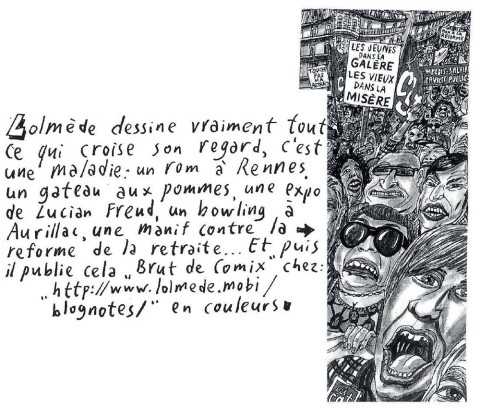 Lolmède dessine vraiment tout
ce qui croise son regard, c'est
une maladie: un rom à Rennes,
un gateau aux pommes, une expo
de Lucian Freud, un bowling à
Aurillac, une manif contre la ➔
reforme de la retraite... Et puis
il publie cela „Brut de Comix" chez:
„http://www.lolmede.mobi/
blognotes/" en couleurs
LES JEUNES
DANS LA
GALÈRE
LES VIEUX
DANS LA
MISÈRE
SERVICE PUBLIC